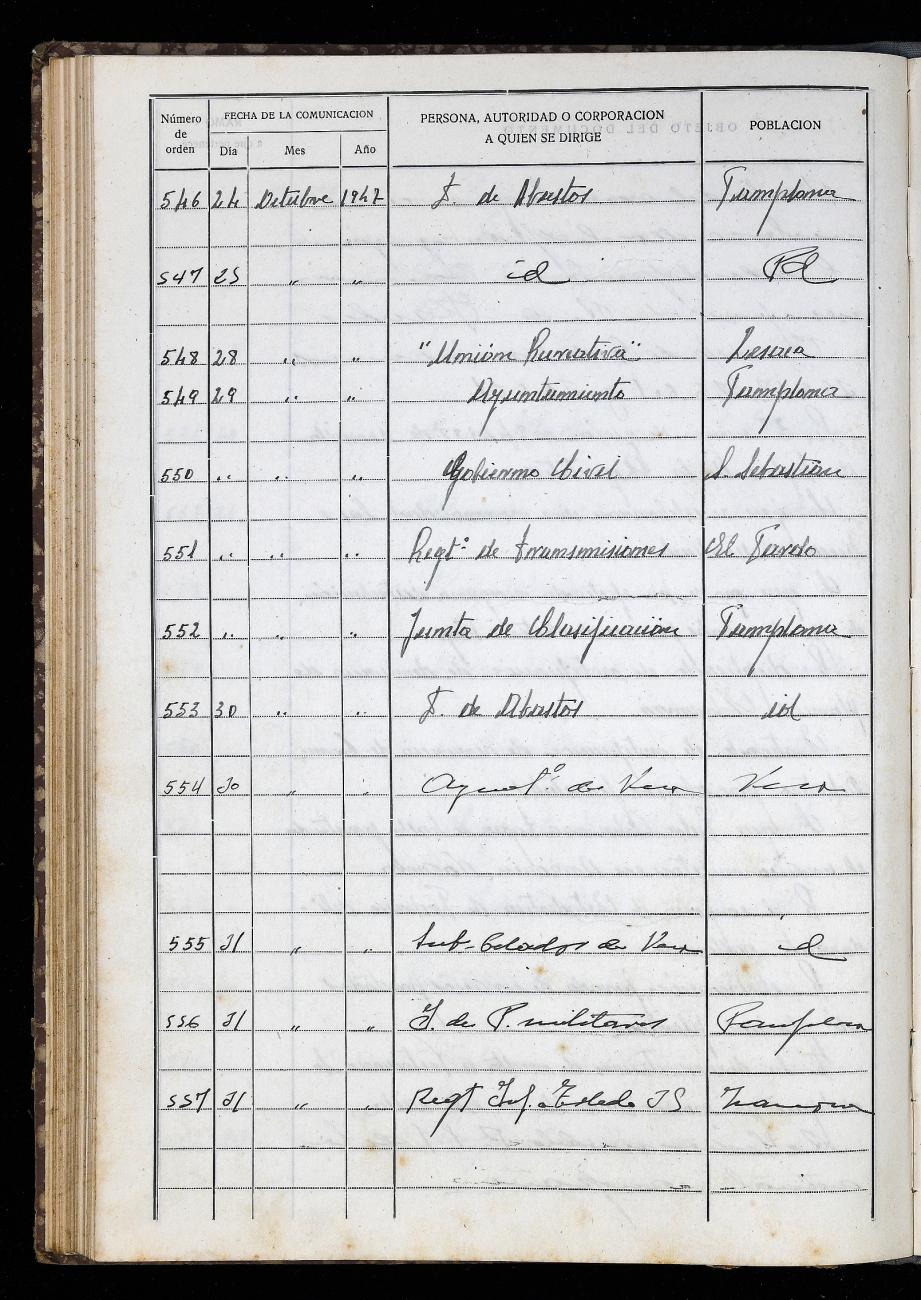 Número de orden FECHA DE LA COMUNICACION PERSONA, AUTORIDAD O CORPORACION A QUIEN SE DIRIGE POBLACION
Día Mes Año
546 24 Octubre 1947 F. de Abastos Pamplona
547 25 " " id Id
548 28 " " "Unión Lucrativa" Lesaca
549 29 " " Ayuntamiento Pamplona
550 " " " Gobierno Civil S. Sebastián
551 " " " Regtº de Transmisiones El Pardo
552 " " " Junta de Clasificación Pamplona
553 30 " " F. de Abastos id
554 30 " " Ayuntº. de Vera Vera
555 31 " " Sub-Celador de Vera id
556 31 " " J. de P. militares Pamplona
557 31 " " Regt Inf. Toledo 35 Zamora